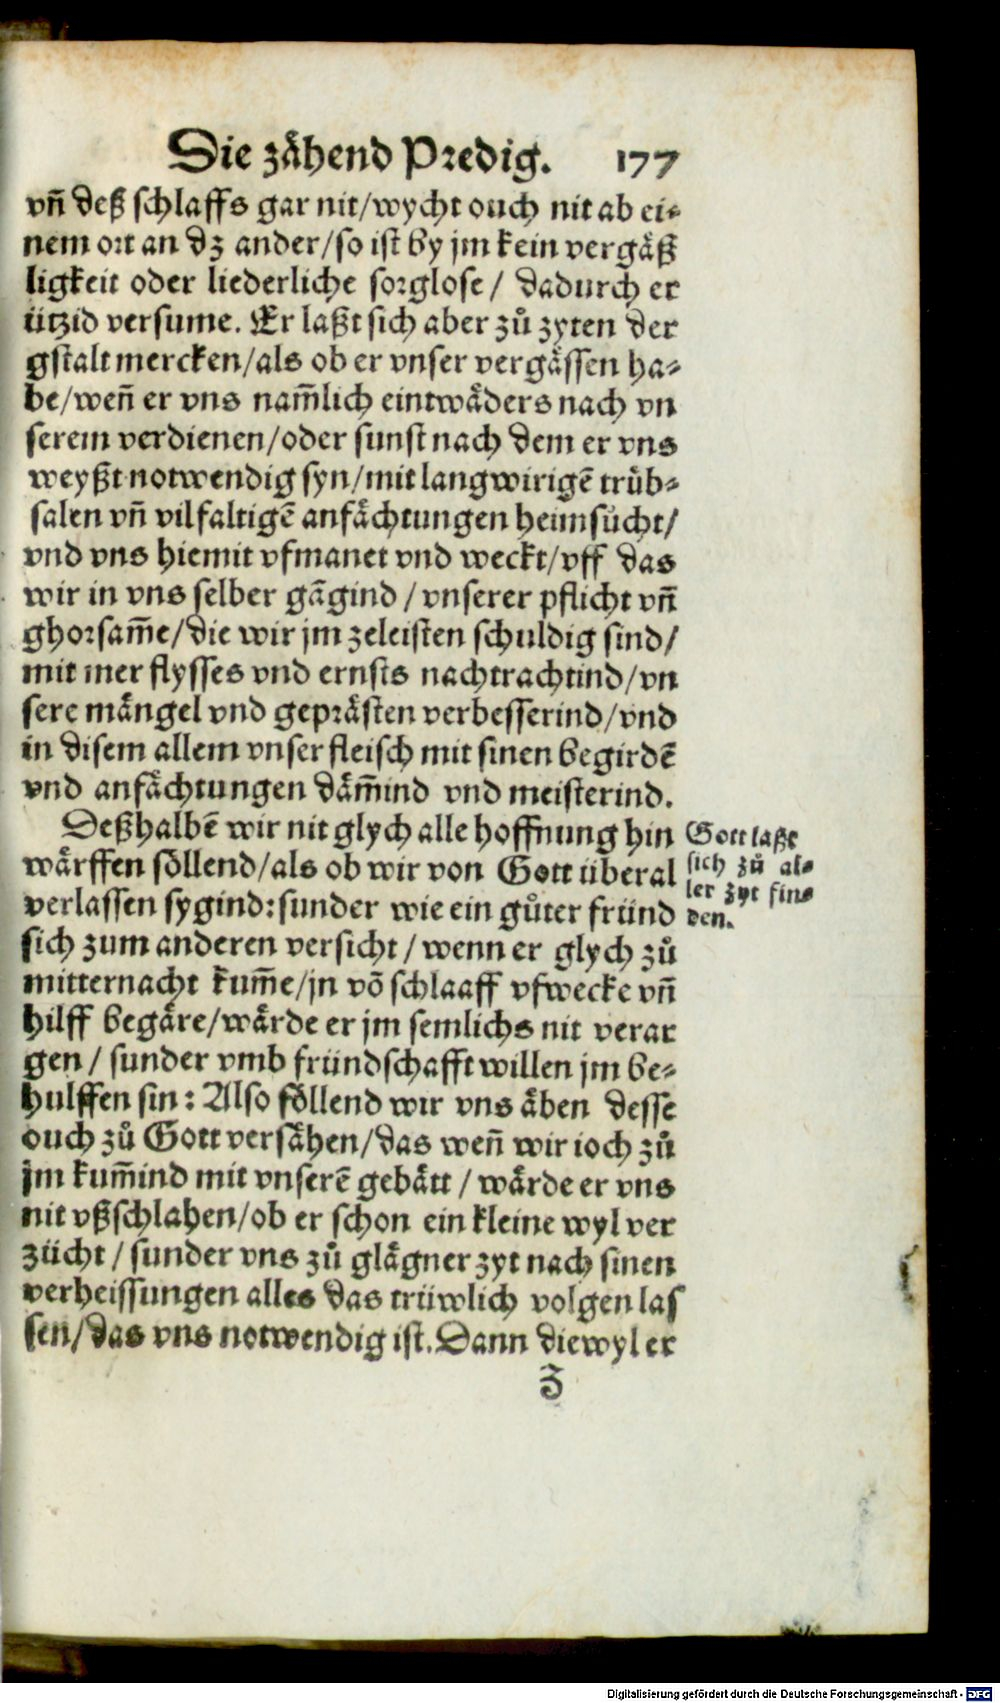 Die zaͤhend Predig. 177
vñ deß schlaffs gar nit/wycht ouch nit ab ei-
nem ort an dz ander/so ist by jm kein vergaͤß
ligkeit oder liederliche sorglose/ dadurch er
ützid versume. Er laßt sich aber zuͦ zyten der
gstalt mercken/als ob er vnser vergaͤssen ha-
be/weñ er vns nam̃lich eintwaͤders nach vn
serem verdienen/oder sunst nach dem er vns
weyßt notwendig syn/mit langwirigẽ truͤb-
salen vñ vilfaltigẽ anfaͤchtungen heimsuͦcht/
vnd vns hiemit vfmanet vnd weckt/vff das
wir in vns selber gãgind/vnserer pflicht vñ
ghorsam̃e/die wir jm zeleisten schuldig sind/
mit mer flysses vnd ernsts nachtrachtind/vn
sere maͤngel vnd gepraͤsten verbesserind/vnd
in disem allem vnser fleisch mit sinen begirdẽ
vnd anfaͤchtungen daͤm̃ind vnd meisterind.
Deßhalbẽ wir nit glych alle hoffnung hin
waͤrffen soͤllend/als ob wir von Gott überal
verlassen sygind: sunder wie ein guͦter fründ
sich zum anderen versicht/wenn er glych zuͦ
mitternacht kum̃e/jn võ schlaaff vfwecke vñ
hilff begaͤre/waͤrde er jm semlichs nit verar
gen/sunder vmb fründschafft willen jm be-
hulffen sin: Also soͤllend wir vns aͤben desse
ouch zuͦ Gott versaͤhen/das weñ wir ioch zuͦ
jm kum̃ind mit vnserẽ gebaͤtt/waͤrde er vns
nit vßschlahen/ob er schon ein kleine wyl ver
zücht/sunder vns zuͦ glaͤgner zyt nach sinen
verheissungen alles das trüwlich volgen las
sen/das vns notwendig ist. Dann diewyl er
Z
Gott laßt
sich zuͦ al-
ler zyt fin-
den.
Digitalisierung gefördert durch die Deutsche Forschungsgemeinschaft - DFG